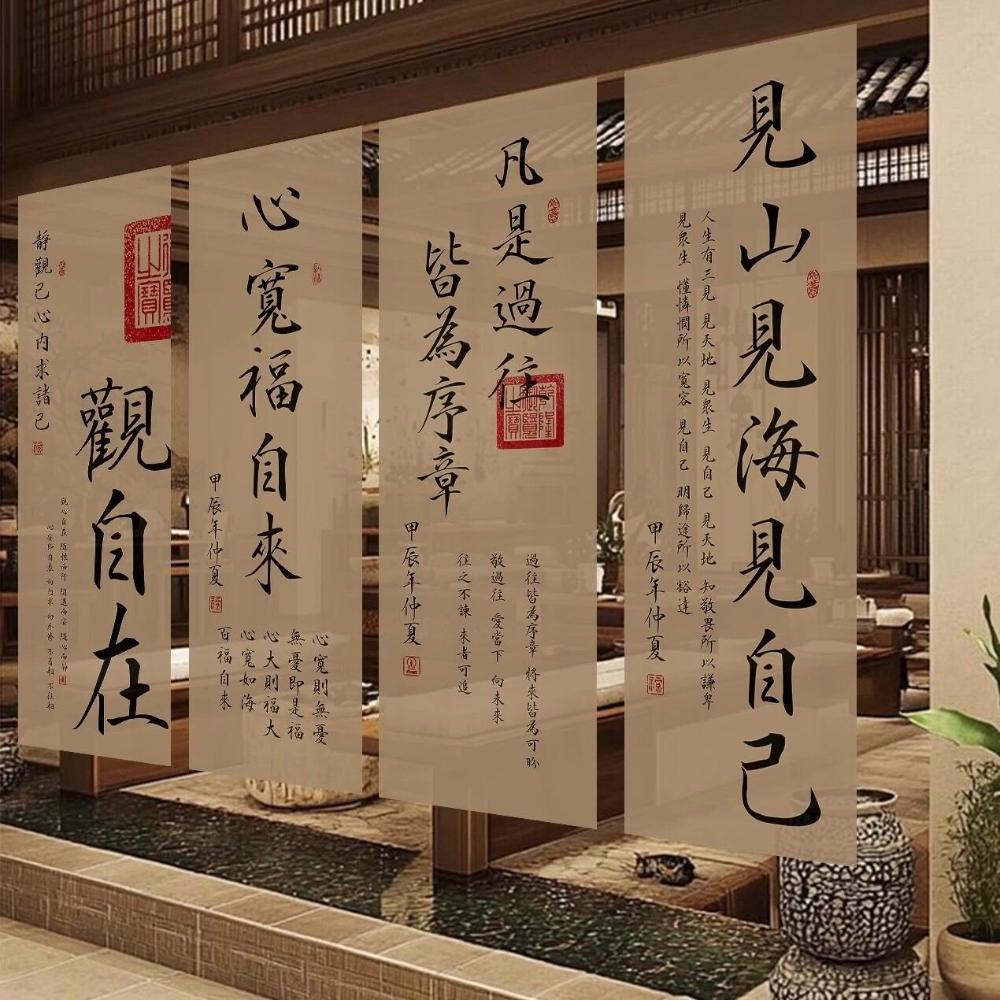 見山見海見自己
人生有三見 見天地 見衆生 見自己 見天地 知敬畏所以謙卑
見衆生 懂憐憫所以寬容 見自己 明歸途所以豁達
甲辰年仲夏
凡是過往
皆為序章
乾隆
御覽
之寶
過往皆為序章 將來皆為可盼
敬過往 愛當下 向未來
往之不諫 來者可追
甲辰年仲夏
心寬福自來
甲辰年仲夏
心寬則無憂
無憂即是福
心大則福大
心寬如海
百福自來
觀自在
靜觀己心內求諸己